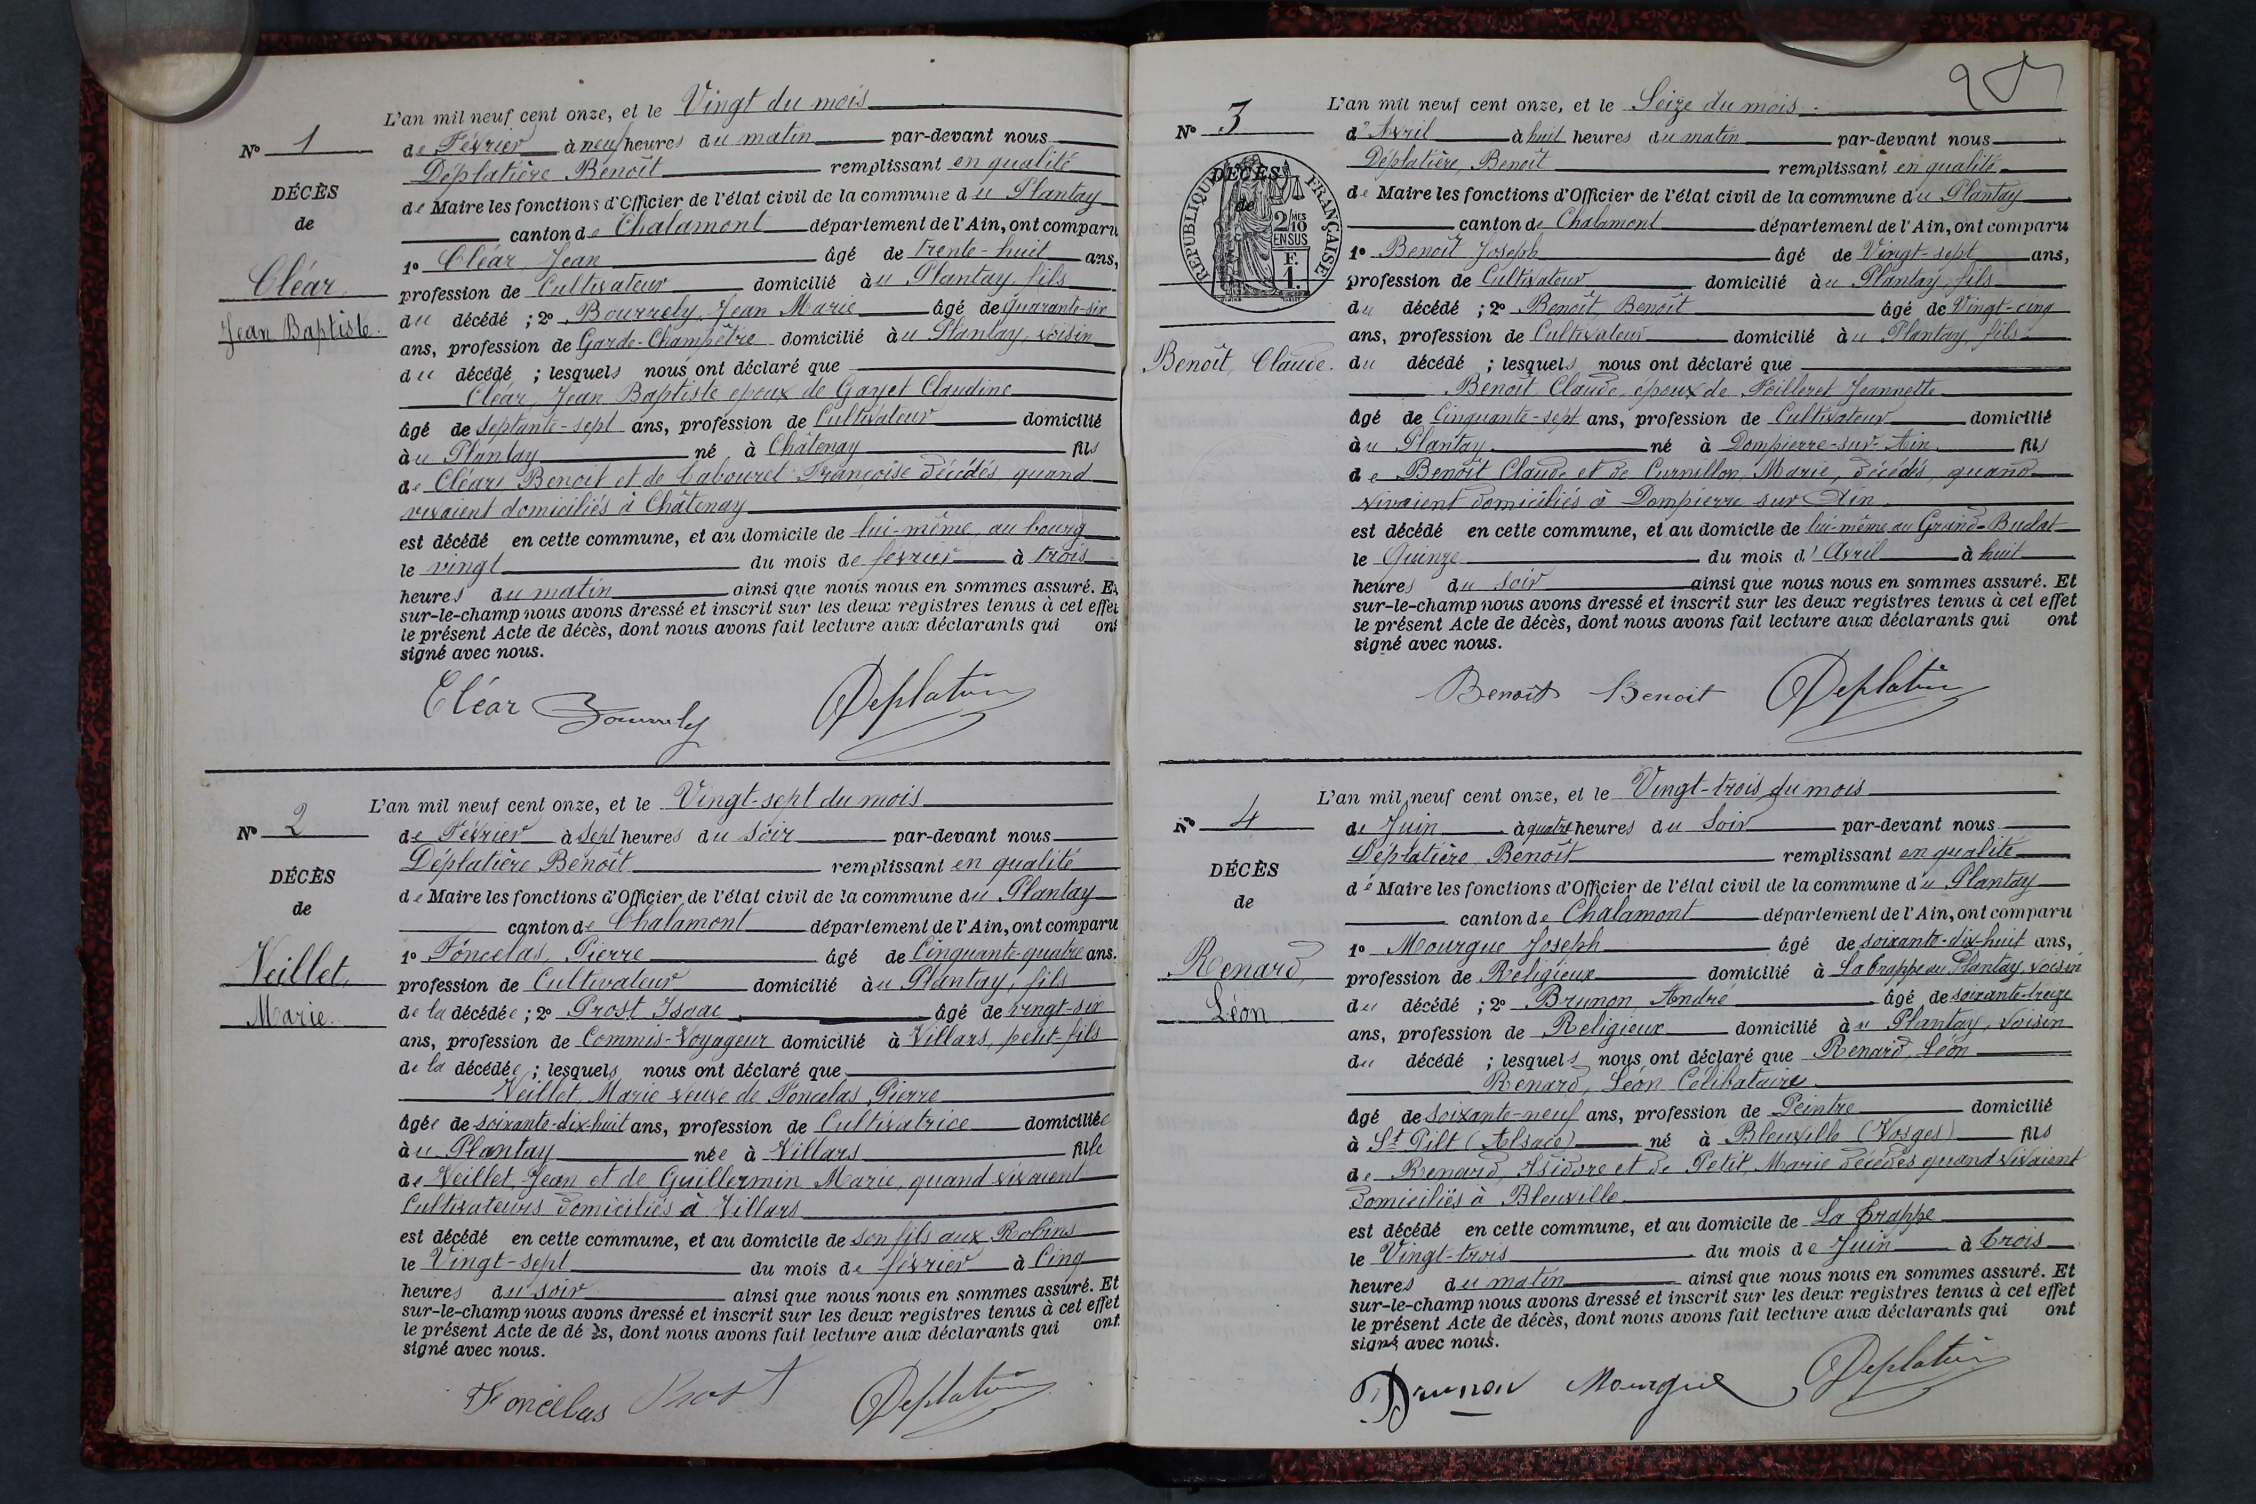 L'an mil neuf cent onze, et le Vingt du mois
N° 1
de Février à neuf heures du matin par-devant nous
Déplatière Benoît remplissant en qualité
DÉCÈS
de Maire les fonctions d'Officier de l'état civil de la commune du Plantay
de
canton de Chalamont département de l'Ain, ont comparu
1° Cléar, Jean âgé de trente-huit ans,
Cléar
profession de Cultivateur domicilié au Plantay, fils
du décédé ; 2° Bourrely, Jean Marie âgé de Quarante-six
Jean Baptiste.
ans, profession de Garde-Champêtre domicilié au Plantay, voisin
du décédé ; lesquels nous ont déclaré que
Cléar, Jean Baptiste epoux de Gayet Claudine
âgé de septante-sept ans, profession de Cultivateur domicilié
au Plantay né à Châtenay fils
de Cléar Benoit et de Labouret Françoise décédés quand
vivaient domiciliés à Châtenay
est décédé en cette commune, et au domicile de lui-même au bourg
le vingt du mois de février à trois
heures du matin ainsi que nous nous en sommes assuré. Et
sur-le-champ nous avons dressé et inscrit sur les deux registres tenus à cet effet
le présent Acte de décès, dont nous avons fait lecture aux déclarants qui ont
signé avec nous.
Cléar Bourrely Deplatière
L'an mil neuf cent onze, et le Vingt-sept du mois
N° 2
de Février à sept heures du soir par-devant nous
Déplatière Benoît remplissant en qualité
DÉCÈS
de Maire les fonctions d'Officier de l'état civil de la commune du Plantay
de
canton de Chalamont département de l'Ain, ont comparu
1° Foncelas, Pierre âgé de Cinquante-quatre ans.
Veillet,
profession de Cultivateur domicilié au Plantay, fils
de la décédée ; 2° Prost Isaac âgé de vingt-six
Marie.
ans, profession de Commis-Voyageur domicilié à Villars, petit-fils
de la décédée ; lesquels nous ont déclaré que
Veillet, Marie veuve de Foncelas, Pierre
âgée de soixante-dix-huit ans, profession de Cultivatrice domiciliée
au Plantay née à Villars fille
de Veillet, Jean et de Guillermin Marie, quand vivaient
Cultivateurs domiciliés à Villars
est décédé en cette commune, et au domicile de son fils aux Robins
le Vingt-sept du mois de février à Cinq
heures du soir ainsi que nous nous en sommes assuré. Et
sur-le-champ nous avons dressé et inscrit sur les deux registres tenus à cet effet
le présent Acte de dé ès, dont nous avons fait lecture aux déclarants qui ont
signé avec nous.
Foncelas Prost Deplatière
L'an mil neuf cent onze, et le Seize du mois
N° 3
d'Avril à huit heures du matin par-devant nous
Déplatière, Benoît remplissant en qualité
DÉCÈS
de Maire les fonctions d'Officier de l'état civil de la commune du Plantay
de
RÉPUBLIQUE FRANÇAISE
2/10MES
EN SUS
F.
1.
canton de Chalamont département de l'Ain, ont comparu
1° Benoît Joseph âgé de Vingt-sept ans,
profession de Cultivateur domicilié au Plantay, fils
du décédé ; 2° Benoît, Benoît âgé de Vingt-cinq
ans, profession de Cultivateur domicilié au Plantay, fils
Benoît, Claude.
du décédé ; lesquels nous ont déclaré que
Benoît Claude, époux de Feilleret Jeannette
âgé de Cinquante-sept ans, profession de Cultivateur domicilié
au Plantay né à Dompierre-sur-Ain fils
de Benoît Claude et de Curnillon, Marie, décédés, quand
vivaient domiciliés à Dompierre sur Ain
est décédé en cette commune, et au domicile de lui-même au Grand-Budat
le Quinze du mois d'Avril à huit
heures du soir ainsi que nous nous en sommes assuré. Et
sur-le-champ nous avons dressé et inscrit sur les deux registres tenus à cet effet
le présent Acte de décès, dont nous avons fait lecture aux déclarants qui ont
signé avec nous.
Benoit Benoit Deplatière
L'an mil neuf cent onze, et le Vingt-trois du mois
N° 4
de Juin à quatre heures du Soir par-devant nous
Déplatière Benoît remplissant en qualité
DÉCÈS
de Maire les fonctions d'Officier de l'état civil de la commune du Plantay
de
canton de Chalamont département de l'Ain, ont comparu
1° Mourgue Joseph âgé de soixante-dix-huit ans,
Renard,
profession de Religieux domicilié à La Trappe au Plantay, voisin
du décédé ; 2° Brunon André âgé de soixante-treize
Léon
ans, profession de Religieux domicilié au Plantay, voisin
du décédé ; lesquels nous ont déclaré que Renard, Léon
Renard, Léon Célibataire
âgé de soixante-neuf ans, profession de Peintre domicilié
à St Pilt (Alsace) né à Bleuville (Vosges) fils
de Renard, Isidore et de Petit, Marie décédés quand vivaient
domiciliés à Bleuville
est décédé en cette commune, et au domicile de La Trappe
le Vingt-trois du mois de Juin à trois
heures du matin ainsi que nous nous en sommes assuré. Et
sur-le-champ nous avons dressé et inscrit sur les deux registres tenus à cet effet
le présent Acte de décès, dont nous avons fait lecture aux déclarants qui ont
signé avec nous.
Brunon Mourgue Deplatière